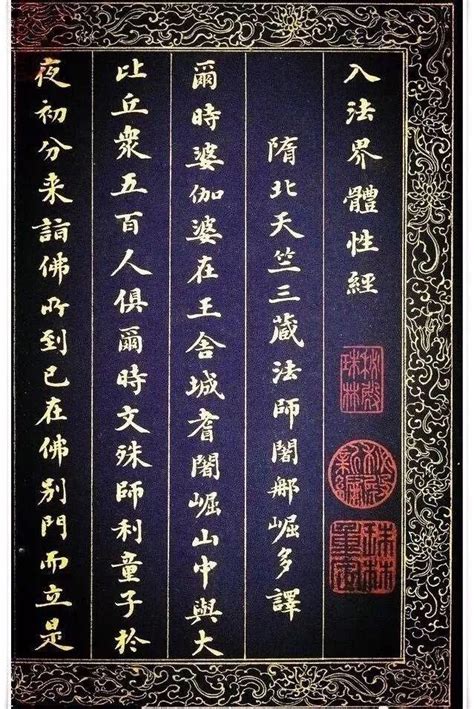 入法界體性經
隋北天竺三藏法師闍那崛多譯
爾時婆伽婆在王舍城耆闍崛山中與大
比丘眾五百人俱爾時文殊師利童子於
夜初分来詣佛所到已在佛別門而立是
秘殿
珠林
秘殿
新編
珠林
重定